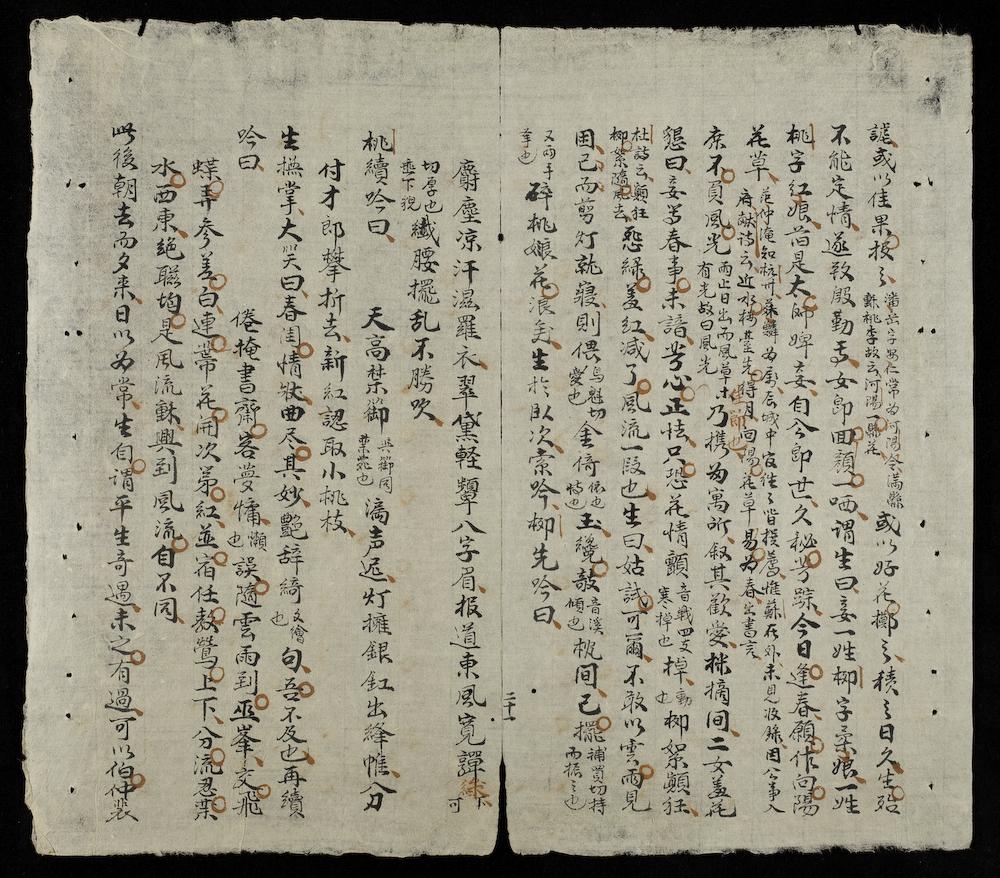 謔或以佳果投之潘岳字安仁常為河陽令滿縣種桃李故云河陽一縣花或以好花擲之積之日久生殆
不能定情遂致殷勤焉女即回顏一哂謂生曰妾一姓柳字柔娘一姓
桃字紅娘皆是太師婢妾自公即世久秘芳踪今日逢春願作向陽
花草范仲淹知杭州蘇麟為属辰城中官徃徃皆撥薦惟蘇在外未見收録因公事入府献诗云近水楼臺先得月向陽花草易為春出書言
庶不負風光雨止日出而風草木有光故曰風光乃携为寓所叙其歡愛挑摘间二女羞花
懇曰妾等春事未諳芳心正怯只恐花情顫音戰四支寒掉也掉動也柳絮顛狂
杜詩云顛狂柳絮隨風去愁綠羞红减了風流一段也生曰姑試可爾不敢以雲雨見
困已而剪灯就寢則偎烏魁切愛也金倚依也恃也玉纔敧音溪傾也枕间已擺補買切持而振之也
又两手摹也碎桃娘花浪矣生於臥次索吟柳先吟曰
二十
麝塵凉汗湿羅衣翠黛軽顰八字眉报道東風寛譚
切厚也垂下貌纖腰擺乱不勝吹
桃續吟曰 天高禁籞與御同禁苑也漏声迟灯擁銀釭出絳帷分
付才郎攀折去新紅認取小桃枝
生撫掌大笑曰春闺情状曲尽其妙艷辞綺文繒也句吾不及也再續
吟曰 倦掩書齋客夢慵懶也誤隨雲雨到巫峯交飛
蝶弄参差白連蒂花開次第紅並宿任教鶯上下分流忍葉
水西東絶聨均是風流興到風流自不同
此後朝去而夕来日以为常生自謂平生奇遇未之有過可以伯仲裴